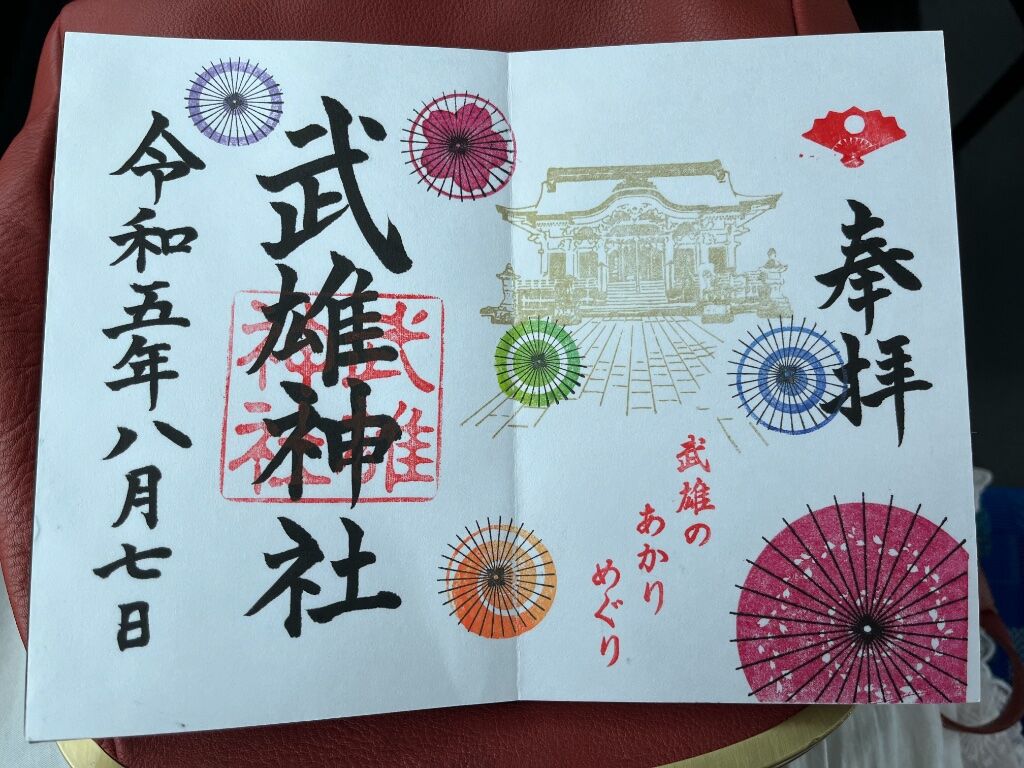 奉拝
武雄の
あかり
めぐり
武雄神社
武雄
神社
令和五年八月七日